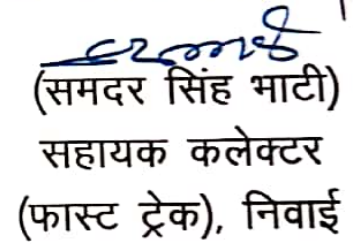 (समदर सिंह भाटी)
सहायक कलेक्टर
(फास्ट ट्रेक), निवाई